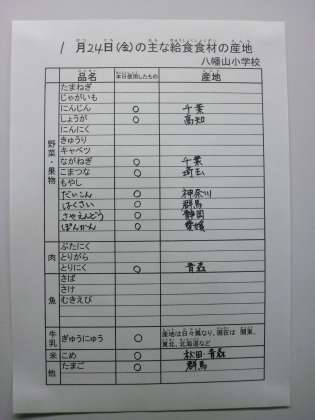 1月24日(金)の主な給食食材の産地
八幡山小学校
品名 本日使用したもの 産地
野菜・果物
たまねぎ
じゃがいも
にんじん ○ 千葉
しょうが ○ 高知
にんにく
きゅうり
キャベツ
ながねぎ ○ 千葉
こまつな ○ 埼玉
もやし
だいこん ○ 神奈川
はくさい ○ 群馬
さやえんどう ○ 静岡
ぽんかん ○ 愛媛
肉
ぶたにく
とりがら
とりにく ○ 青森
魚
さば
さけ
むきえび
牛乳 ぎゅうにゅう ○ 産地は日々異なり、現在は 関東、
東北、北海道など
米 こめ ○ 秋田・青森
他 たまご ○ 群馬